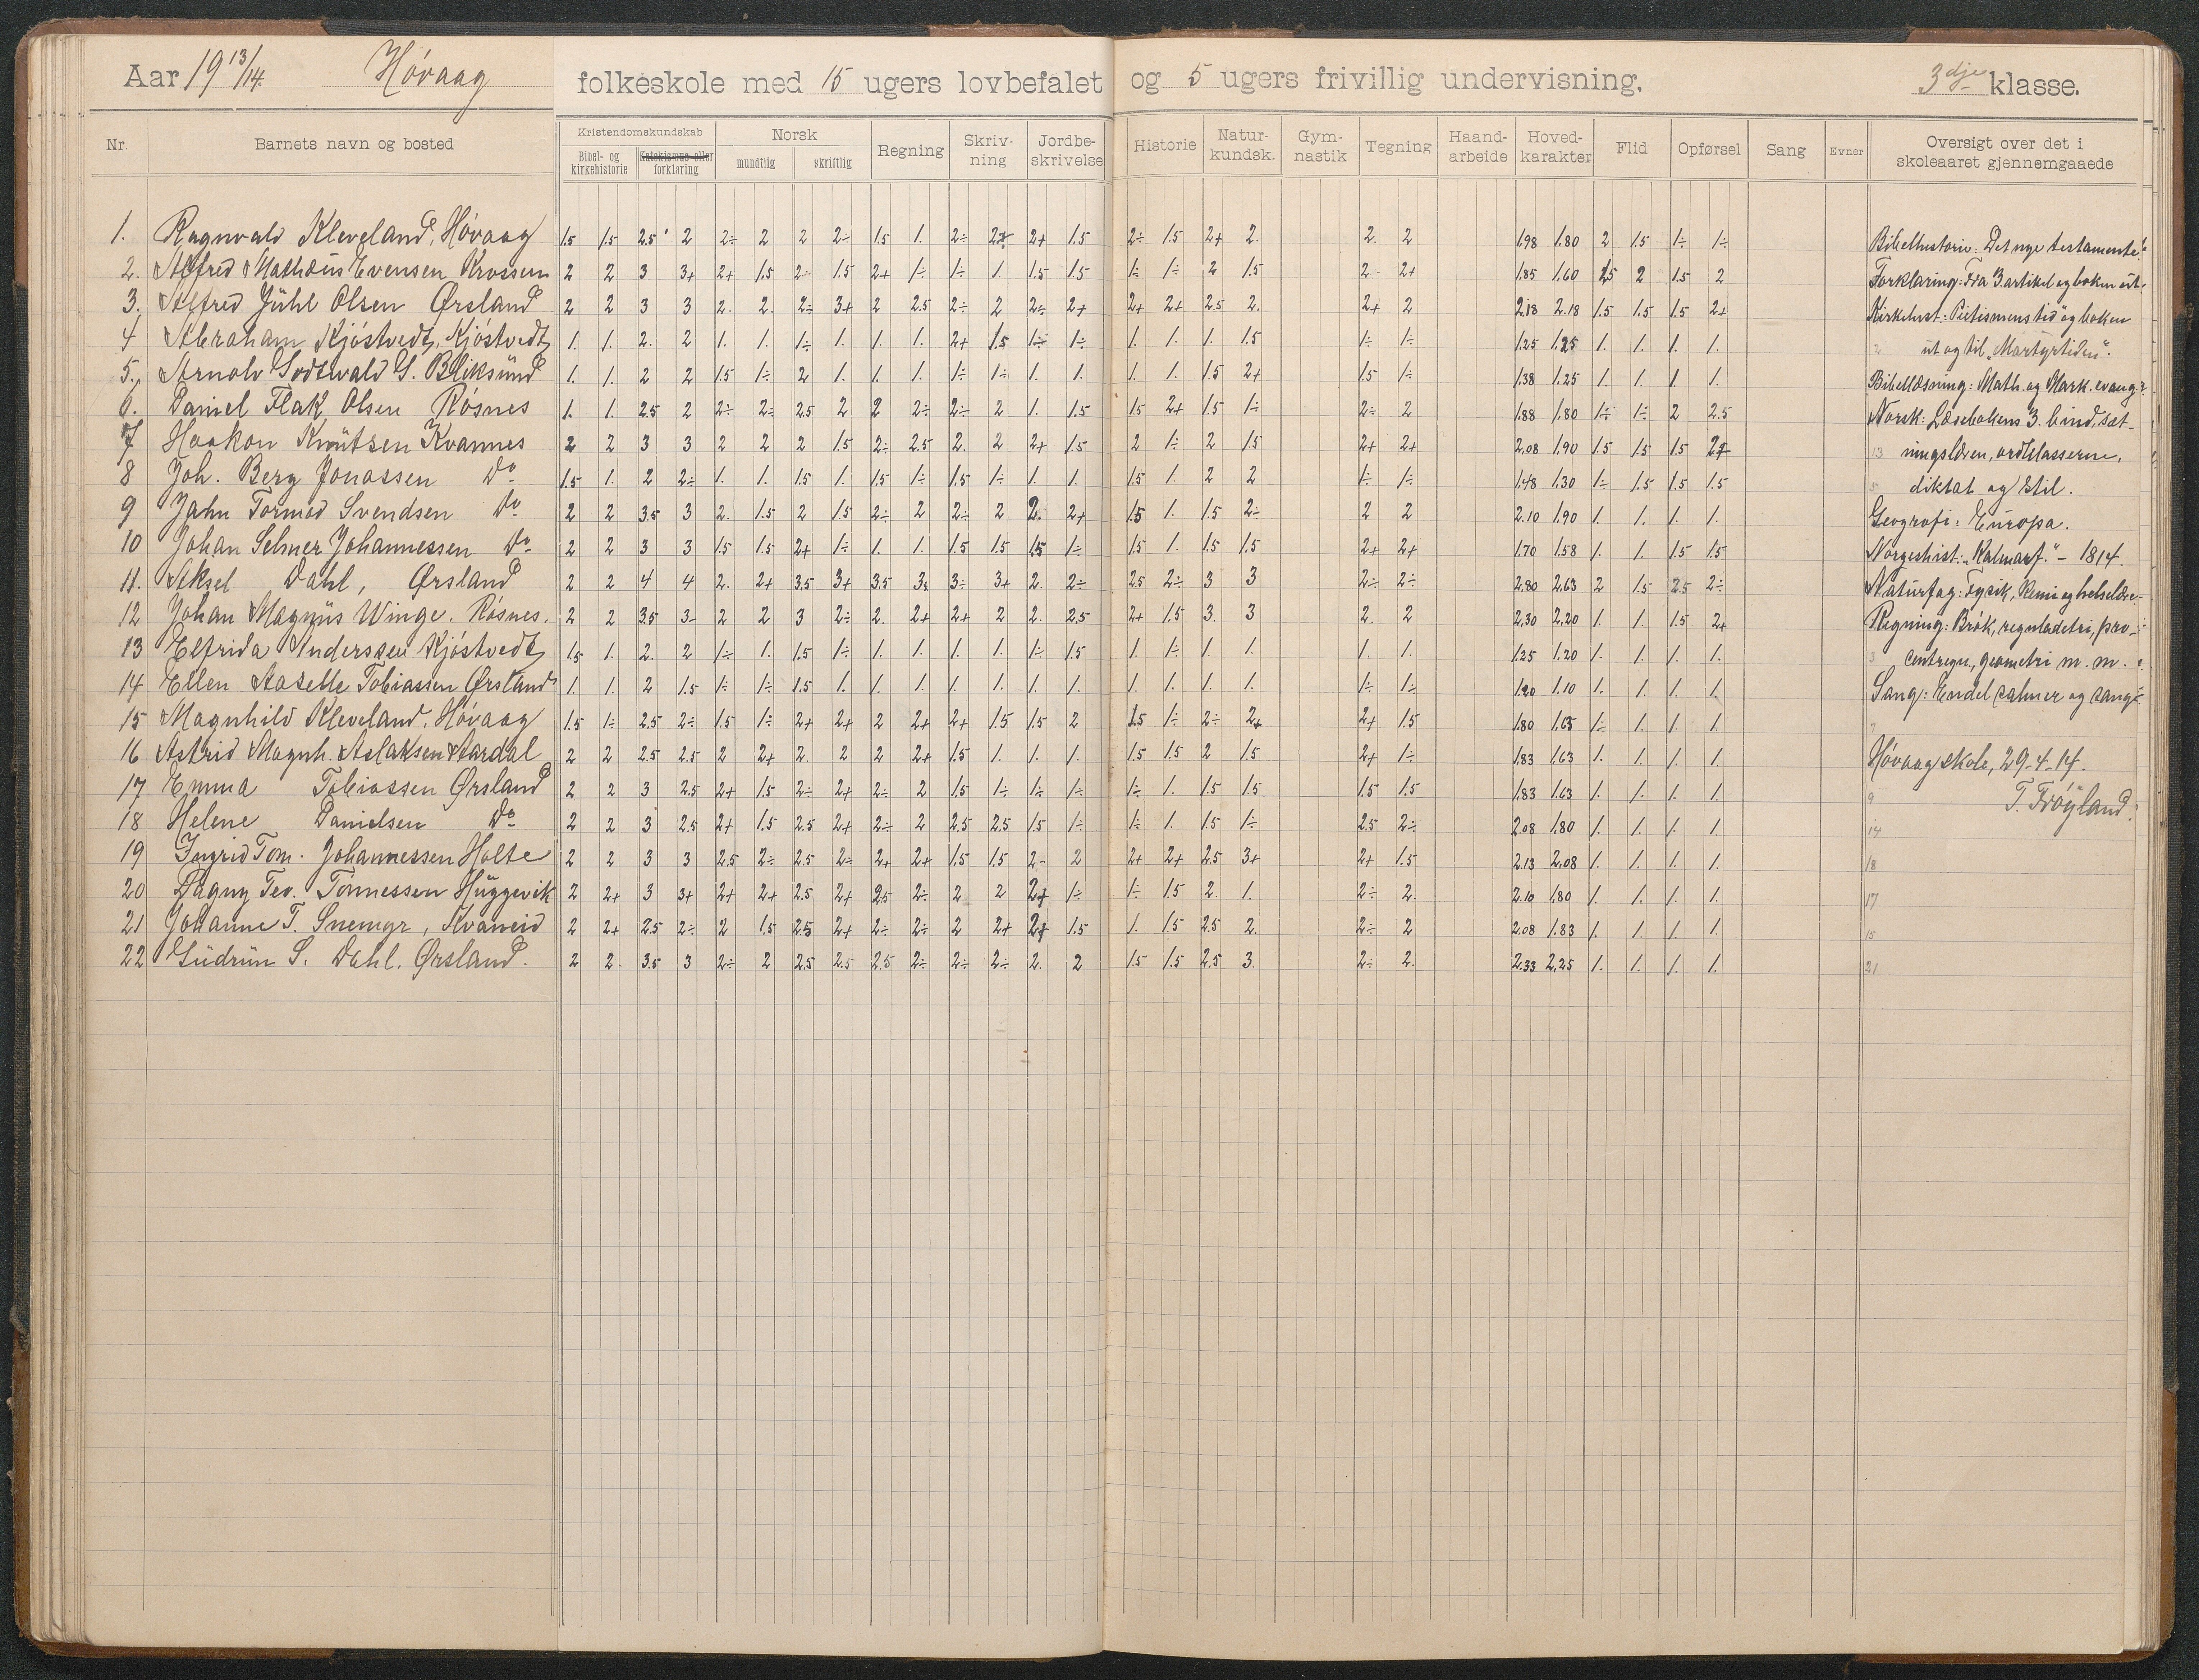 Aar 1913/14. Høvaag folkeskole med 15 ugers lovbefalet og 5 ugers frivillig undervisning. 3dje klasse.
Nr. Barnets navn og bosted Kristendomskundskab Norsk Regning Skriv- ning Jordbe- skrivelse Historie Natur- kundsk. Gym- nastik Tegning Haand- arbeide Hoved- karakter Flid Opførsel Sang Evner Oversigt over det i skoleaaret gjennemgaaede
Bibel- og kirkehistorie Katekismus eller forklaring mundtlig skriftlig
1. Ragnvald Kleveland, Høvaag 1.5 1.5 2.5 2 2÷ 2 2 2÷ 1.5 1. 2÷ 2+ 2+ 1.5 2÷ 1.5 2+ 2. 2. 2 1.98 1.80 2 1.5 1÷ 1÷
2. Alfred Mathæus Evensen Krossen 2 2 3 3+ 2+ 1.5 2÷ 1.5 2+ 1÷ 1÷ 1. 1.5 1.5 1÷ 1÷ 2 1.5 2 2+ 1.85 1.60 2.5 2 1.5 2
3. Alfred Juhl Olsen Ørsland 2 2 3 3 2. 2. 2÷ 3+ 2 2.5 2÷ 2 2÷ 2+ 2+ 2+ 2.5 2. 2+ 2 2.18 2.18 1.5 1.5 1.5 2+
4 Abraham Kjøstvedt, Kjøstvedt 1. 1. 2. 2 1. 1. 1÷ 1. 1. 1. 2+ 1.5 1÷ 1÷ 1. 1. 1. 1.5 1÷ 1÷ 1.25 1.25 1. 1. 1. 1.
5. Arnolv Godtwald G. Bliksund 1. 1. 2 2 1.5 1÷ 2 1. 1. 1. 1÷ 1÷ 1. 1. 1. 1. 1.5 2+ 1.5 1÷ 1.38 1.25 1. 1. 1. 1.
6. Daniel Flak Olsen Røsnes 1. 1. 2.5 2 2÷ 2÷ 2.5 2 2 2÷ 2÷ 2 1. 1.5 1.5 2+ 1.5 1÷ 2÷ 2 1.88 1.80 1÷ 1÷ 2 2.5
7 Haakon Knutsen Kvannes 2 2 3 3 2 2 2 1.5 2÷ 2.5 2. 2 2+ 1.5 2 1÷ 2 1.5 2+ 2+ 2.08 1.90 1.5 1.5 1.5 2+
8 Joh. Berg Jonassen Do 1.5 1. 2 2÷ 1. 1. 1.5 1. 1.5 1÷ 1.5 1÷ 1. 1. 1.5 1. 2 2 1÷ 1÷ 1.48 1.30 1÷ 1.5 1.5 1.5
9 Jahn Tormod Svendsen Do 2 2 3.5 3 2. 1.5 2 1.5 2÷ 2 2÷ 2 2. 2+ 1.5 1. 1.5 2÷ 2 2 2.10 1.90 1. 1. 1. 1.
10 Johan Selmer Johannessen Do 2 2 3 3 1.5 1.5 2+ 1÷ 1. 1. 1.5 1.5 1.5 1÷ 1.5 1. 1.5 1.5 2+ 2+ 1.70 1.58 1. 1. 1.5 1.5
11. Aksel Dahl, Ørsland 2 2 4 4 2. 2+ 3.5 3+ 3.5 3÷ 3÷ 3+ 2. 2÷ 2.5 2÷ 3 3 2÷ 2÷ 2.80 2.63 2 1.5 2.5 2÷
12 Johan Magnus Winge. Røsnes. 2 2 3.5 3- 2 2 3 2÷ 2. 2+ 2+ 2 2. 2.5 2+ 1.5 3. 3 2. 2 2.30 2.20 1. 1. 1.5 2+
13 Elfrida Anderssen Kjøstvedt 1.5 1. 2. 2 1÷ 1. 1.5 1÷ 1. 1. 1. 1. 1÷ 1.5 1. 1÷ 1. 1. 1. 1. 1.25 1.20 1. 1. 1. 1.
14 Ellen Aaselle Tobiassen Ørsland 1. 1. 2 1.5 1÷ 1÷ 1.5 1. 1. 1. 1. 1. 1. 1. 1. 1. 1. 1. 1÷ 1÷ 1.20 1.10 1. 1. 1. 1.
15 Magnhild Kleveland, Høvaag 1.5 1÷ 2.5 2÷ 1.5 1÷ 2+ 2+ 2 2+ 2+ 1.5 1.5 2 1.5 1÷ 2÷ 2+ 2+ 1.5 1.80 1.65 1÷ 1. 1. 1.
16 Astrid Magnh. Aslaksen Aardal 2 2 2.5 2.5 2 2+ 2. 2 2 2+ 1.5 1. 1. 1. 1.5 1.5 2 1.5 2+ 1÷ 1.83 1.63 1. 1. 1. 1.
17 Emma Tobiassen Ørsland 2 2 3 2.5 2+ 1.5 2÷ 2+ 2÷ 2 1.5 1÷ 1÷ 1÷ 1÷ 1. 1.5 1.5 1.5 1.5 1.83 1.63 1. 1. 1. 1.
18 Helene Danielsen Do 2 2 3 2.5 2+ 1.5 2.5 2+ 2÷ 2 2.5 2.5 1.5 1÷ 1÷ 1. 1.5 1÷ 2.5 2÷ 2.08 1.80 1. 1. 1. 1.
19 Ingrid Tom. Johannessen Holte 2 2 3 3 2.5 2÷ 2.5 2÷ 2+ 2+ 1.5 1.5 2- 2 2+ 2+ 2.5 3+ 2+ 1.5 2.13 2.08 1. 1. 1. 1.
20 Dagny Teo. Tønnessen Huggevik 2 2+ 3 3+ 2+ 2+ 2.5 2+ 2.5 2÷ 2 2 2+ 1÷ 1÷ 1.5 2. 1. 2÷ 2. 2.10 1.80 1. 1. 1. 1.
21 Johanne T. Snemyr, Kvaneid 2 2+ 2.5 2÷ 2 1.5 2.5 2+ 2÷ 2÷ 2 2+ 2+ 1.5 1. 1.5 2.5 2. 2÷ 2 2.08 1.83 1. 1. 1. 1.
22 Gudrun S. Dahl. Ørsland. 2 2. 3.5 3 2÷ 2 2.5 2.5 2.5 2÷ 2÷ 2÷ 2. 2 1.5 1.5 2.5 3. 2÷ 2. 2.33 2.25 1. 1. 1. 1.
Bibelhistorie: Det nye testamente.
Forklaring: Fra 3. artikel og boken ut.
Kirkehist: Pietismens tid og boken
ut og til "Martyrtiden".
Bibellæsning: Math. og Mark. evang.
Norsk: Læsebokens 3. bind, sæt-
ningslæren, ordklasserne,
diktat og stil.
Geografi: Europa.
Norgeshist: "Kalmarf." - 1814.
Naturfag: Fysik, kemi og helselære.
Regning: Brøk, reguladetri, pro-
centregn., geometri m. m.
Sang: Endel salmer og sange.
Høvaag skole, 29-4-14.
T. Frøyland.